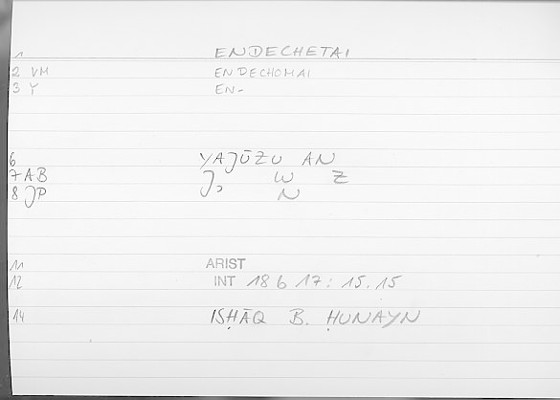 1 ENDECHETAI
2 VM ENDECHOMAI
3 Y EN-
6 YAJŪZU AN
7 AB J, W Z
8 JP N
11 ARIST
12 INT 18 6 17: 15.15
14 ISḤĀQ B. ḤUNAYN